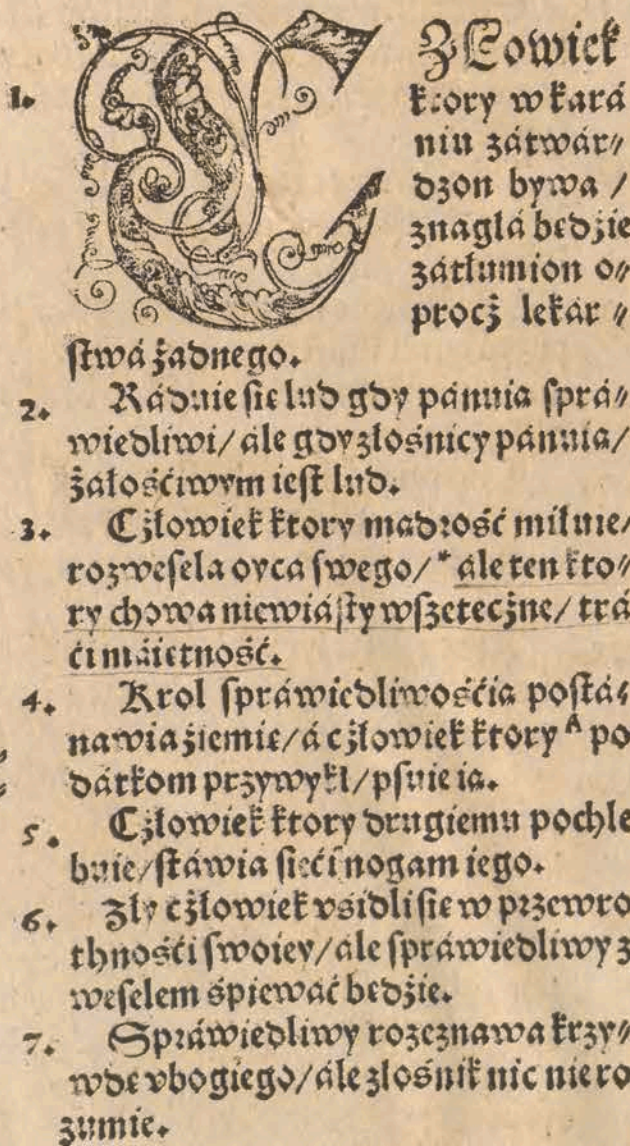 CZŁowiek
1. ktory w kará
niu zátwár⸗
dzon bywa /
znaglá bedzie
zátłumion o⸗
procż lekár ⸗
stwá żadnego.
2. Ráduie sie lud gdy pánuia sprá⸗
wiedliwi/ ále gdy złośnicy pánuia/
żałośćiwym iest lud.
3. Cżłowiek ktory mądrość miłuie/
rozwesela oycá swego/ * ále ten kto⸗
ry chowa niewiásty wszetecżne/ trá
ći máietność.
4. Krol spráwiedliwośćia postá⸗
nawia źiemie/ á cżłowiek ktory A po
dárkom przywykł/ psuie ia.
5. Cżłowiek ktory drugiemu pochle
buie/ stáwia sieći nogam iego.
6. Zły cżłowiek vsidli sie w przewro
thnośći swoiey/ ále spráwiedliwy z
weselem śpiewáć bedźie.
7. Spráwiedliwy rozeznawa krzy⸗
wde vbogiego/ ále złośnik nic nie ro
zumie.